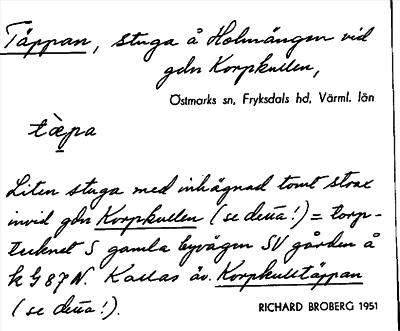 Täppan, stuga å Holmängen vid
gdn Korpkullen,
Östmarks sn, Fryksdals hd, Värml. län
tæ̀pa
Liten stuga med inhägnad tomt strax
invid gdn Korpkullen (se detta!) = torp-
tecknet S gamla byvägen SV gården å
k G 87 N. Kallas äv. Korpkulltäppan
(se detta!).
RICHARD BROBERG 1951